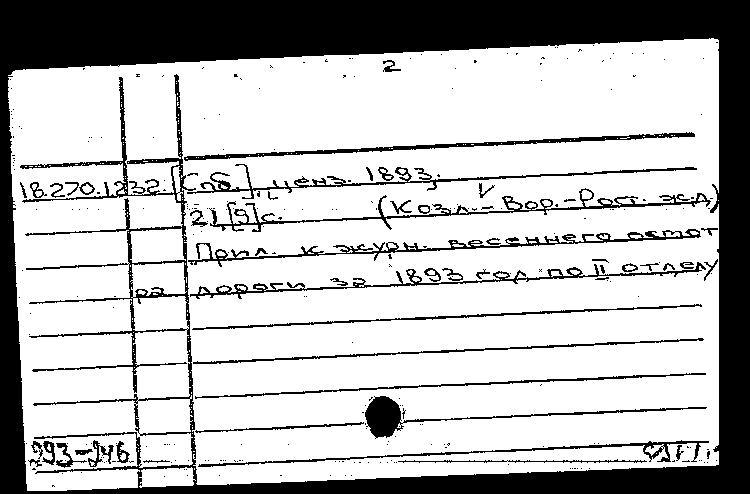 2
18.270.1232. [Спб.], ценз. 1893.
21,[9]с. (Козл.-Вор.-Рост. ж.д)
Прил. к журн. весеннего осмот
ра дороги за 1893 год по II отделу
293-246